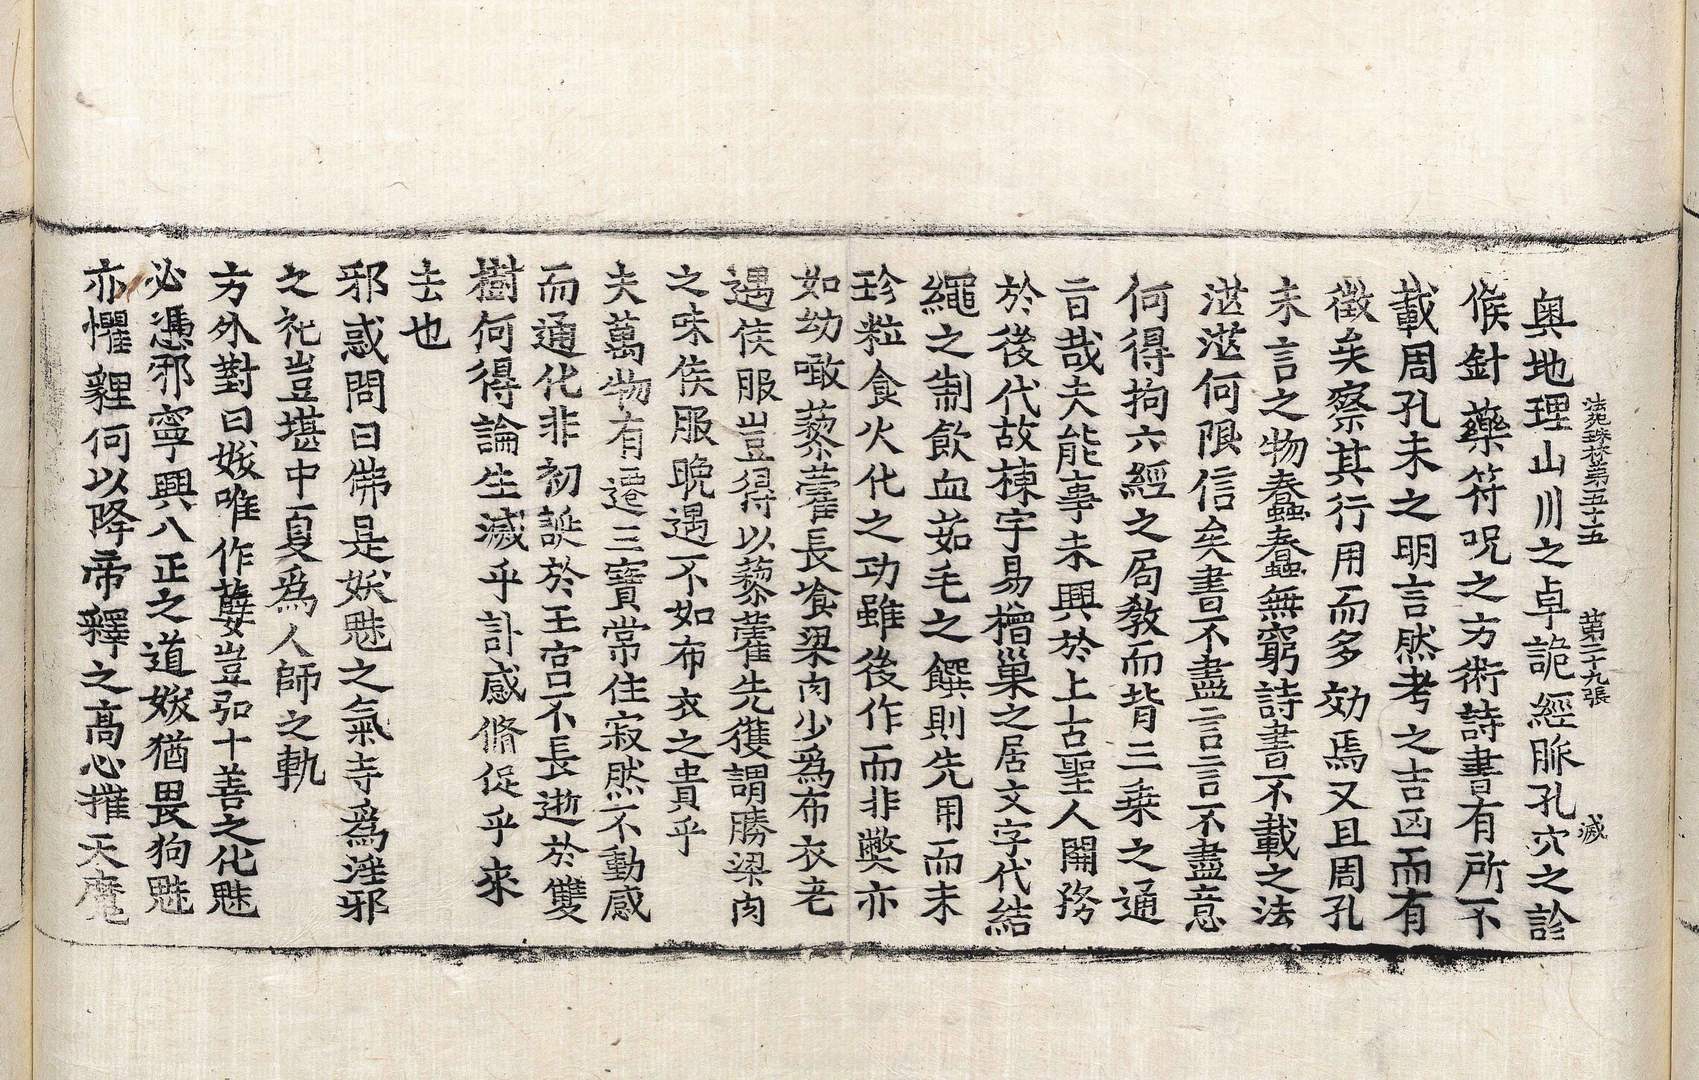 法苑珠林第五十五　第二十九張　滅
奥地理山川之卓詭經脈孔穴之診
候針藥符呪之方術詩書有所不
載周孔未之明言然考之吉凶而有
徵矣察其行用而多効焉又且周孔
未言之物蠢蠢無窮詩書不載之法
茫茫何限信矣書不盡言言不盡意
何得拘六經之局教而背三乘之通
旨哉夫能事未興於上古聖人開務
於後代故棟宇易橧巢之居文字代結
繩之制飲血茹毛之饌則先用而未
珍粒食火化之功雖後作而非弊亦
如幼噉藜藿長飡梁肉少爲布衣老
遇侯服豈得以藜藿先獲謂勝梁肉
之味侯服晚遇不如布衣之貴乎
夫萬物有遷三寶常住寂然不動感
而通化非初誕於王宮不長逝於雙
樹何得論生滅乎訃感脩促乎來
去也
邪惑問曰佛是妖魅之氣寺爲淫邪
之祀豈堪中夏爲人師之軌
方外對曰妖唯作孽豈弘十善之化魅
必憑邪寧興八正之道妖猶畏狗魅
亦懼貍何以降帝釋之高心摧天魔